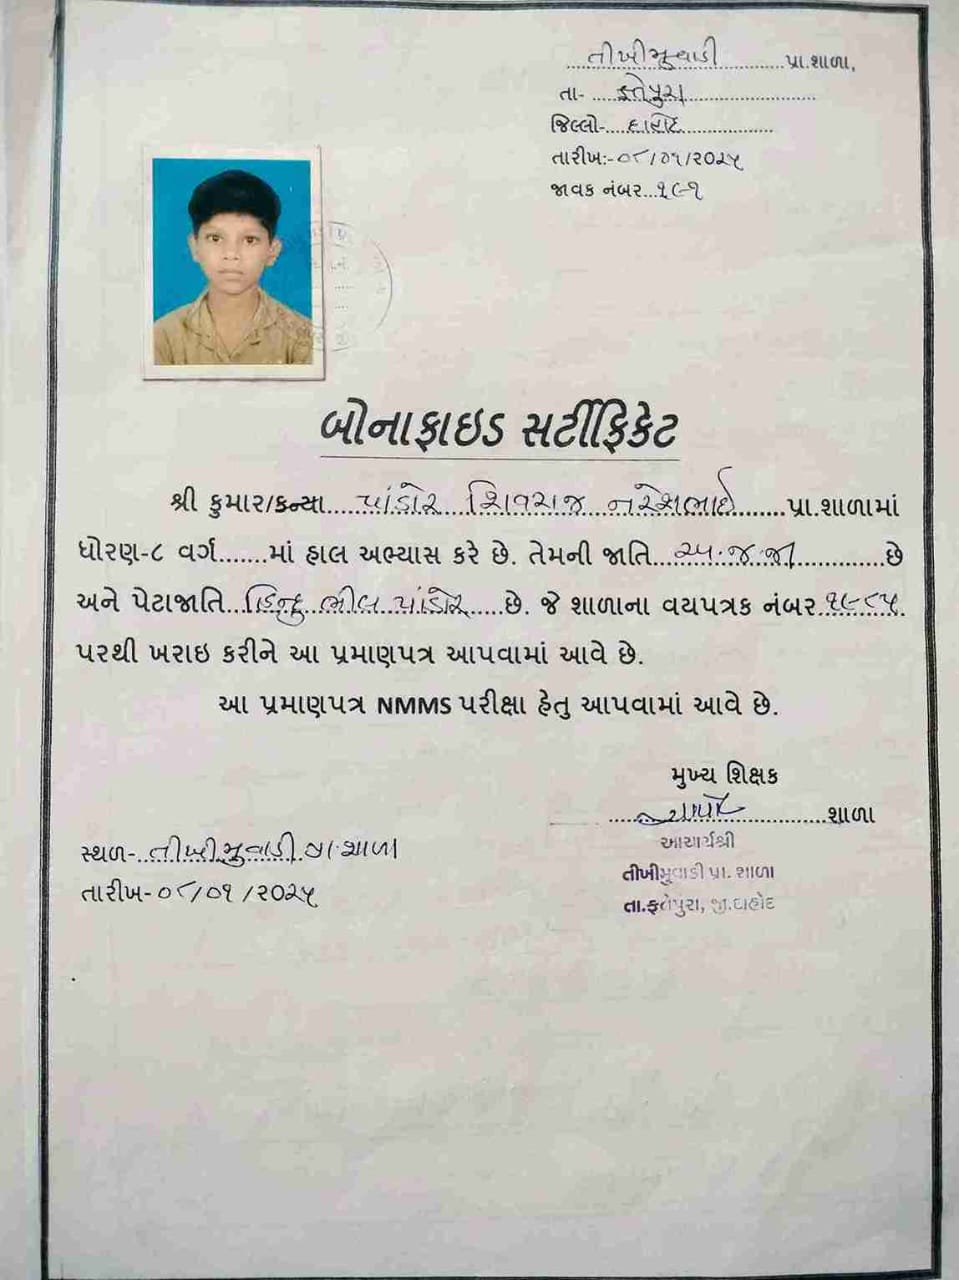 તીખીમુવાડી પ્રા.શાળા,
તા- ફતેપુરા
જિલ્લો- દાહોદ
તારીખ:- ૦૮/૦૧/૨૦૨૫
જાવક નંબર...
બોનાફાઇડ સર્ટીફિકેટ
શ્રી કુમાર/કન્યા પાંડોર શિવરાજ નરેશભાઈ પ્રા.શાળામાં
ધોરણ-૮ વર્ગ.......માં હાલ અભ્યાસ કરે છે. તેમની જાતિ અ.જ.જા છે
અને પેટાજાતિ હિન્દુ ભીલ પાંડોર છે. જે શાળાના વયપત્રક નંબર
પરથી ખરાઇ કરીને આ પ્રમાણપત્ર આપવામાં આવે છે.
આ પ્રમાણપત્ર NMMS પરીક્ષા હેતુ આપવામાં આવે છે.
મુખ્ય શિક્ષક
શાળા
સ્થળ- તીખીમુવાડી પ્રા.શાળા
તારીખ- ૦૮/૦૧/૨૦૨૫
આચાર્યશ્રી
તીખીમુવાડી પ્રા. શાળા
તા.ફતેપુરા, જી.દાહોદ